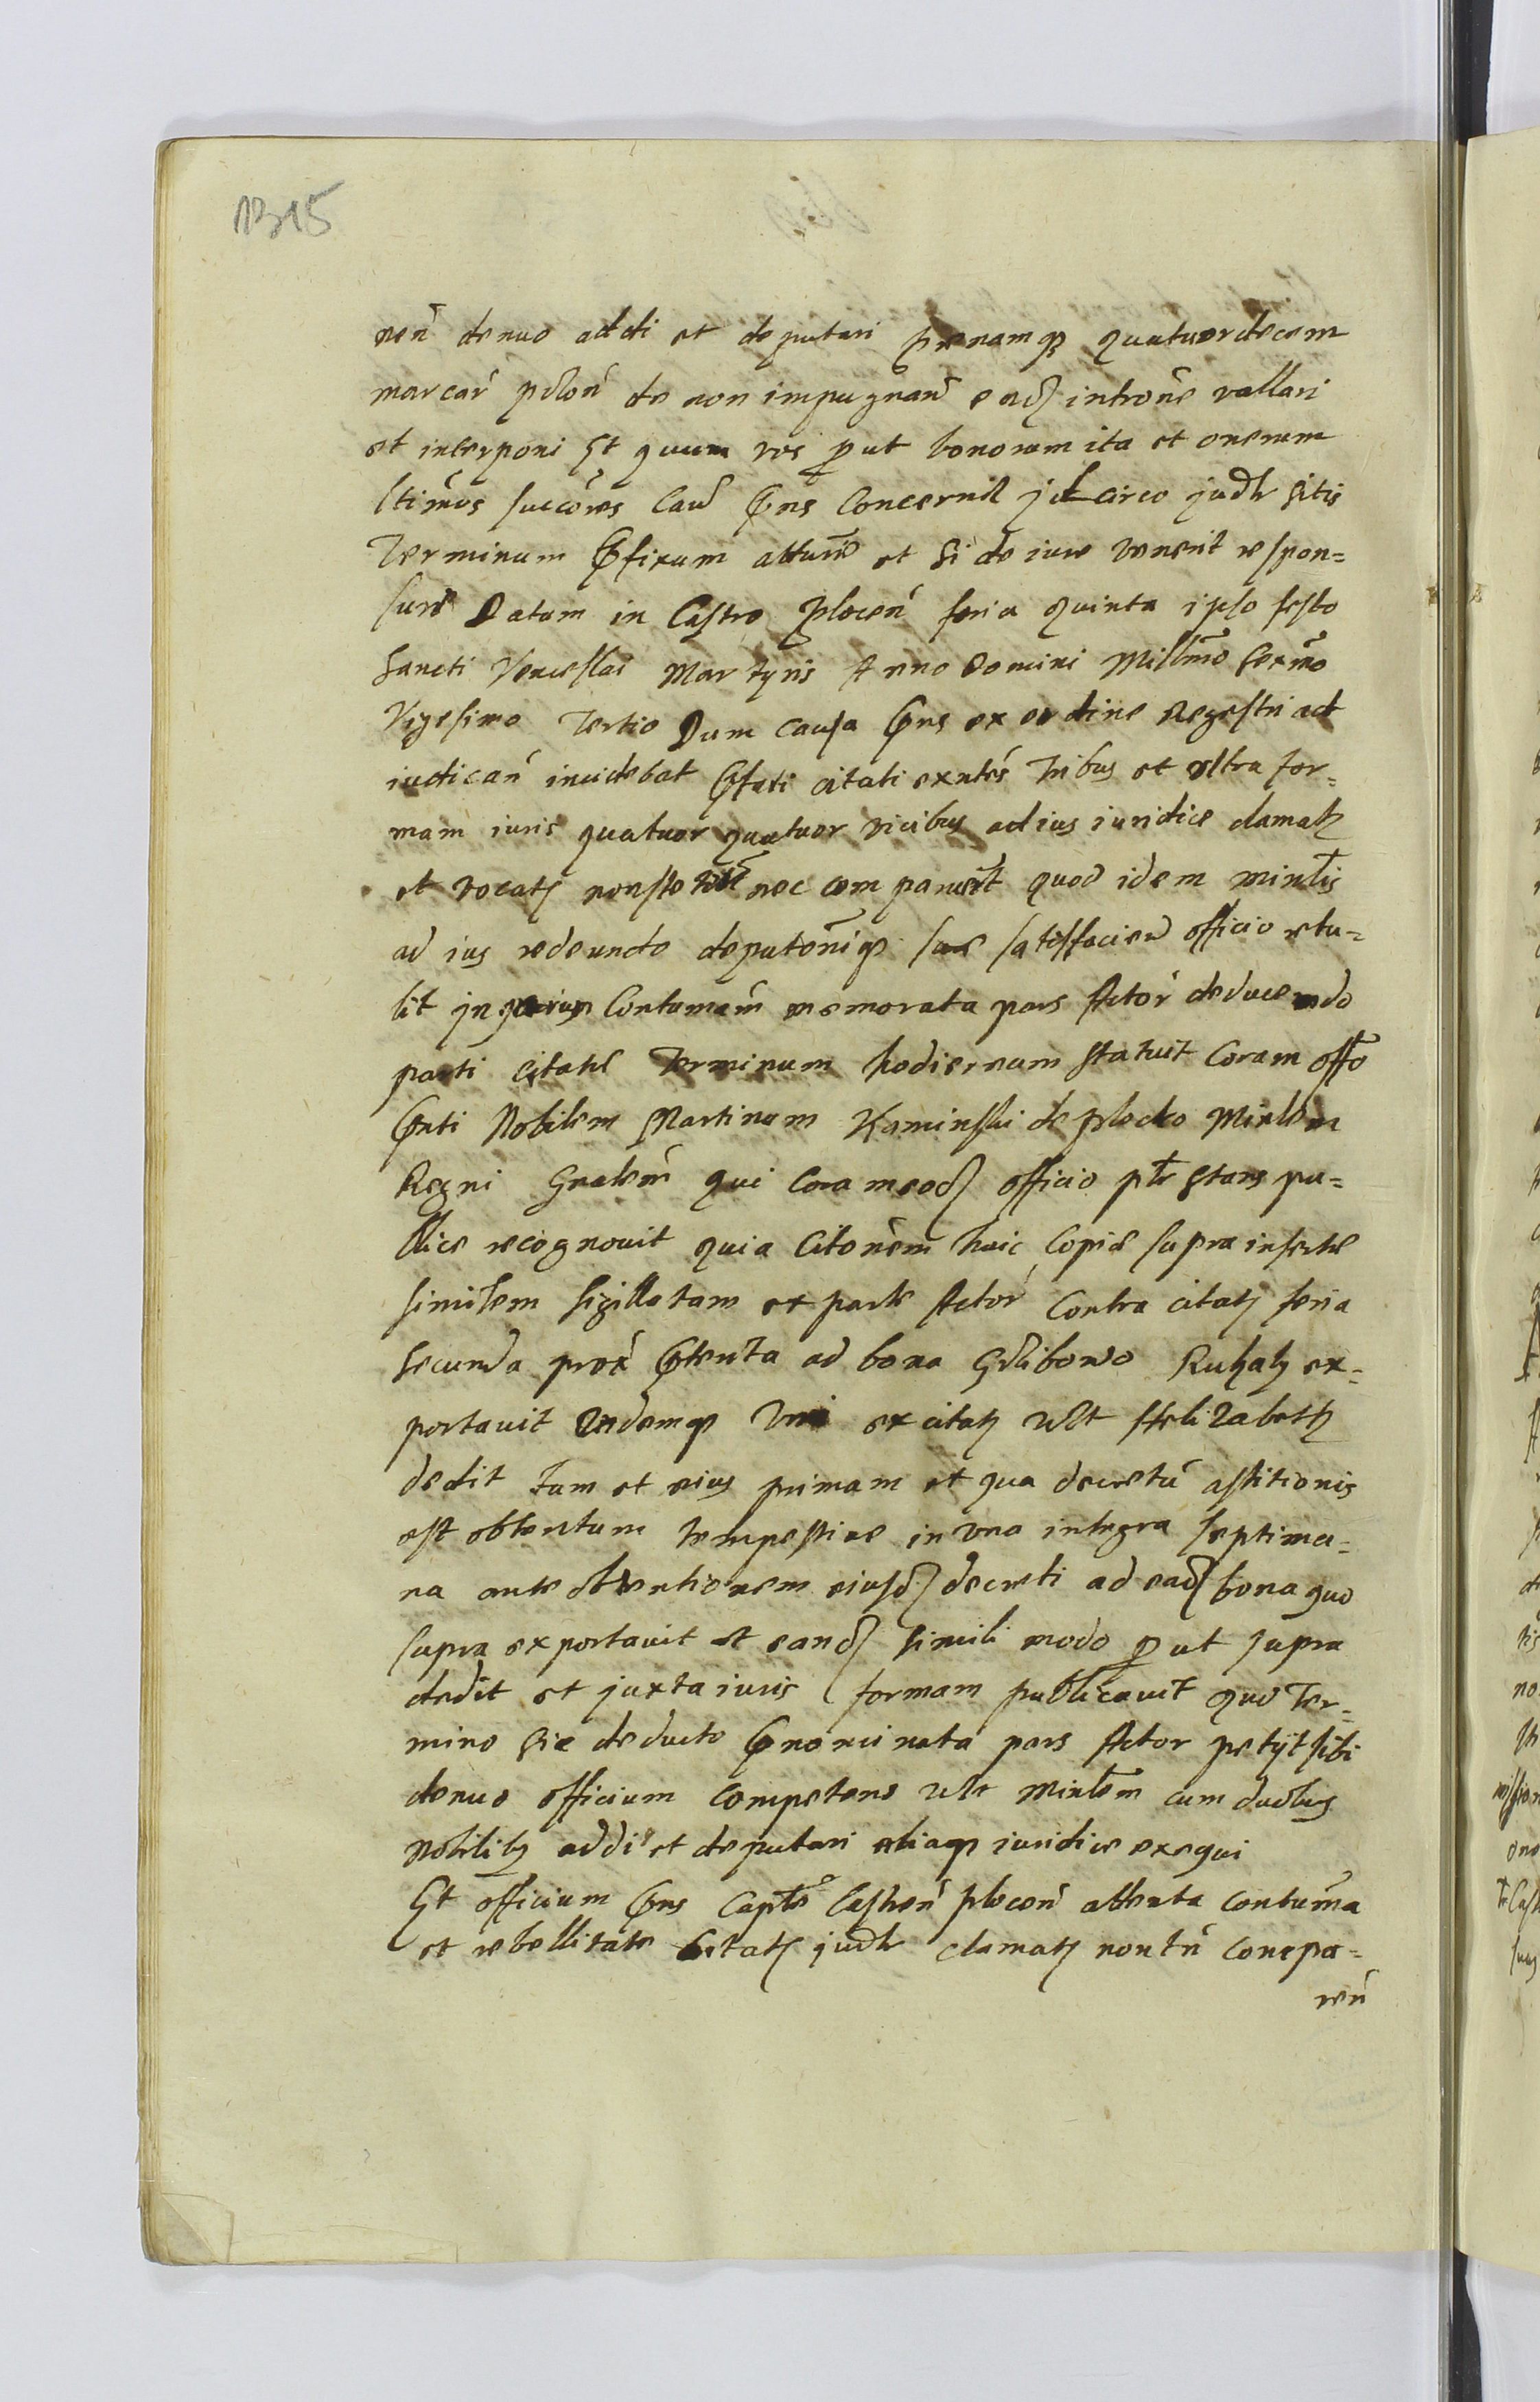 1315
ren̄ denuo addi et deputari pœnamq3 quatuordecem
marcar̄ polon̄ de non impugnan̄ eadꝫ intron̄e vallari
et interponi Et quum vos ꝓut bonorum ita et onerum
ltimōs succōres Cau̅ p̄ns Concernit Jd circo judr̄ sitis
Terminum p̄fixum atten̄ et si de iure venerit respon=
suri Datum in Castro Plocen̄ feria quinta ipso festo
Sancti Venceslai Martyris Anno Domini Millm̄o Sexm̄o
Vigesimo Tertio Dum causa p̄ns ex ordine Regestri ad
iudican̄ incidebat p̄fati citati exn̄tes tribus et ultra for=
mam iuris quatuor quatuor vicibus ad ius iuridice clamatꝫ
et vocatꝫ non steter̄t nec comparuer̄t quod idem mintr̄lis
ad ius redeundo deputon̄iqꝫ suæ satisfacien̄ officio retu=
lit In quorum Contumam̄ memorata pars Actor̄ deducendo
parti citatæ Terminum hodiernum statuit Coram offō
p̄nti Nobilem Martinum Kaminski de plocko Mintlem
Regni Gnalem̄ qui Coram eodꝫ officio ptr̄ stans pu=
blice recognouit quia Citonēm huic Copiæ supra insertæ
similem Sigillatam ex parte Actor̄ Contra citatꝫ feria
secunda prox̄ p̄terita ad bona Gulbowo exportauit
portauit Eandemqꝫ Vni ex citatꝫ ult Helizabeth
dedit Tum et eius primam et qua decretū astitionis
est obtentum tempestiue in vna integra septima=
na ante obtentionem eiusdꝫ decreti ad eadꝫ bona quo
supra exportauit et eandꝫ simili modo ꝓut supra
dedit et juxta iuris formam publicauit quo Ter=
mino sic deducto p̄nominata pars Actor petijt sibi
denuo officium competens ult mintlem̄ cum duobus
nobilibꝫ addi et deputari aliaqꝫ iuridice exequi
Et officium p̄ns Captl̄e Castren̄ plocen̄ attenta contum̄a
et rebellitate Citatꝫ judr̄ clamatꝫ non tn̄ compa=
ren̄